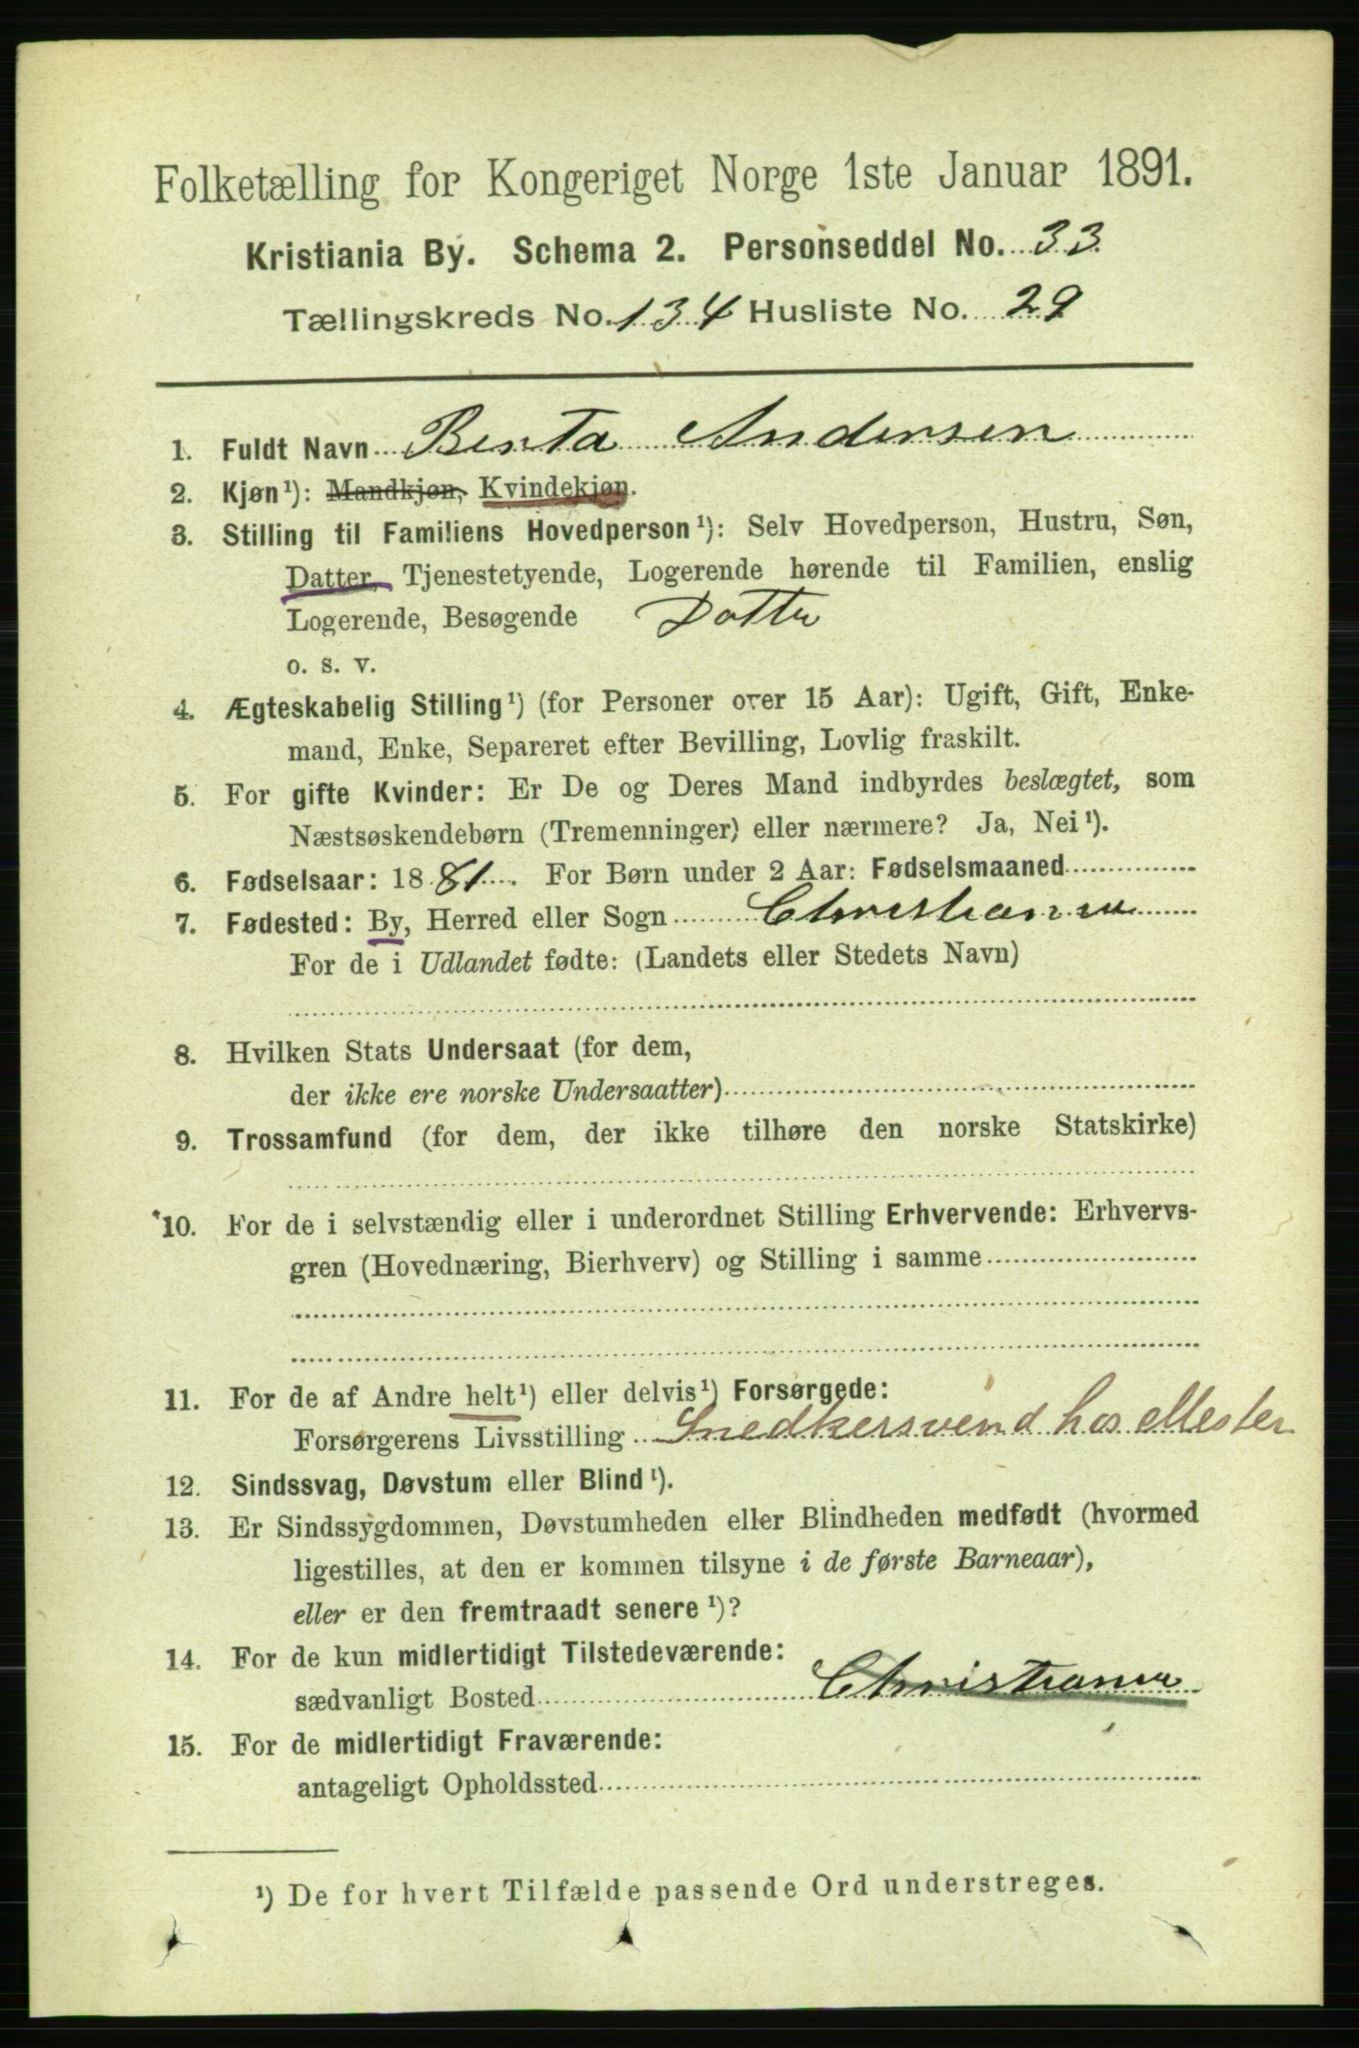 Folketælling for Kongeriget Norge 1ste Januar 1891.
Kristiania By. Schema 2. Personseddel No. 33
Tællingskreds No. 134 Husliste No. 29
1. Fuldt Navn Berta Andersen
2. Kjøn¹): Mandkjøn, Kvindekjøn.
3. Stilling til Familiens Hovedperson¹): Selv Hovedperson, Hustru, Søn,
Datter, Tjenestetyende, Logerende hørende til Familien, enslig
Logerende, Besøgende Datter
o. s. v.
4. Ægteskabelig Stilling¹) (for Personer over 15 Aar): Ugift, Gift, Enke-
mand, Enke, Separeret efter Bevilling, Lovlig fraskilt.
5. For gifte Kvinder: Er De og Deres Mand indbyrdes beslægtet, som
Næstsøskendebørn (Tremenninger) eller nærmere? Ja, Nei¹).
6. Fødselsaar: 1881. For Børn under 2 Aar: Fødselsmaaned
7. Fødested: By, Herred eller Sogn Christiania
For de i Udlandet fødte: (Landets eller Stedets Navn)
8. Hvilken Stats Undersaat (for dem,
der ikke ere norske Undersaatter)
9. Trossamfund (for dem, der ikke tilhøre den norske Statskirke)
10. For de i selvstændig eller i underordnet Stilling Erhvervende: Erhvervs-
gren (Hovednæring, Bierhverv) og Stilling i samme
11. For de af Andre helt¹) eller delvis¹) Forsørgede:
Forsørgerens Livsstilling Snedkersvend hos Mester
12. Sindssvag, Døvstum eller Blind¹).
13. Er Sindssygdommen, Døvstumheden eller Blindheden medfødt (hvormed
ligestilles, at den er kommen tilsyne i de første Barneaar),
eller er den fremtraadt senere¹)?
14. For de kun midlertidigt Tilstedeværende:
sædvanligt Bosted Christiania
15. For de midlertidigt Fraværende:
antageligt Opholdssted
¹) De for hvert Tilfælde passende Ord understreges.